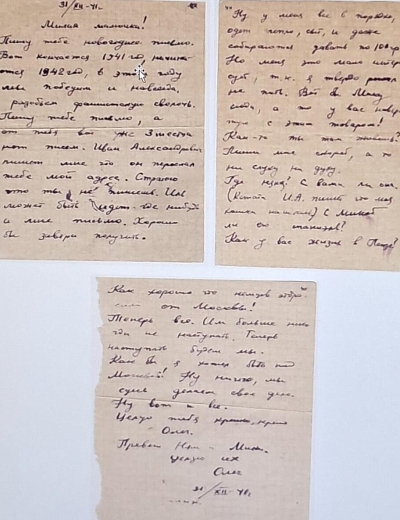 31/XII-41.
Милая мамочка!
Пишу тебе новогоднее письмо.
Вот кончается 1941 год, начи
ется 1942 год, в этом году
мы победим и навсегда,
разобьем фашистскую сволочь.
Пишу тебе письмо, а
от тебя вот уже 3 месяца
нет писем. Иван Александрович
пишет мне что он переслал
тебе мой адрес. Странно
что ты не пишешь. Или
может быть идет где нибудь
и мне письмо. Хорошо
бы завтра получить.
Ну у меня все в порядке,
одет тепло, сыт, и даже
собираются давать по 100 гр
Но меня это мало интере
сует, т.к. я твердо решил
не пить. Вот
сюда, а то у вас навер
туго с этим товаром!
Как-то ты там живешь?
Пиши мне скорей, а то
ни слуху ни духу.
Где
(Кстати И.А. пишет что
Как у вас жизнь в
Как хорошо что немцев отбро
сили от Москвы!
Теперь все. Им больше ниг
где не наступать. Теперь
наступать будем мы.
Как бы я хотел быть под
Москвой! Ну ничего, мы
здесь делаем свое дело.
Ну вот и все.
Целую тебя крепко, крепко
Олег.
Привет
Целую их
Олег
31/XII-41.